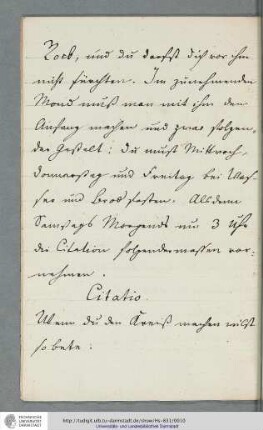 Rock, und du darfst dich vor ihm
nicht fürchten. Im zunehmenden
Mond muß man mit ihm den
Anfang machen und zwar folgen-
der Gestalt: du must Mittwoch,
Donnerstag und Freitag bei Was-
ser und Brod fasten. Alsdann
Samstags Morgends um 3 Uhr
die Citation folgendermassen vor-
nehmen.
Citatio
Wenn du den Kreiß machen wilst
so bete:
TECHNISCHE
UNIVERSITÄT
DARMSTADT
http://tudigit.ulb.tu-darmstadt.de/show/Hs-831/0010
Universitäts- und Landesbibliothek Darmstadt